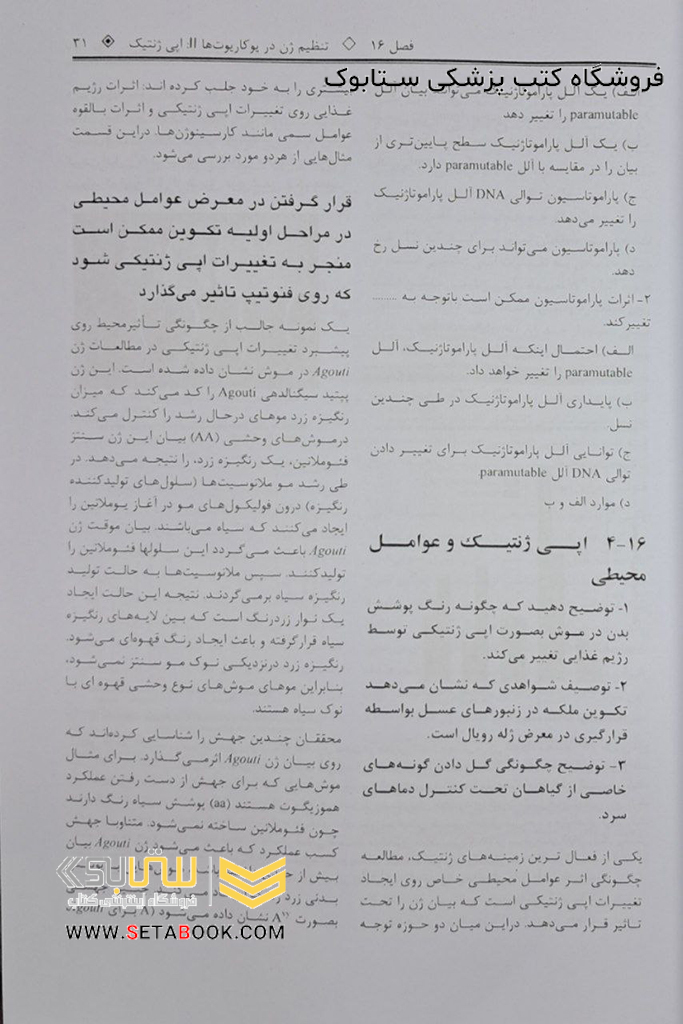 فصل ۱۶ ◇ تنظیم ژن در یوکاریوت‌ها II: اپی ژنتیک ۳۱
فروشگاه کتب پزشکی ستابوک
الف) یک آلل پاراموتاژنیک می‌تواند بیان آلل
paramutable را تغییر دهد
ب) یک آلل پاراموتاژنیک سطح پایین‌تری از
بیان را در مقایسه با آلل paramutable دارد.
ج) پاراموتاسیون توالی DNA آلل پاراموتاژنیک
را تغییر می‌دهد.
د) پاراموتاسیون می‌تواند برای چندین نسل رخ
دهد.
۲- اثرات پاراموتاسیون ممکن است باتوجه به .........
تغییرکند.
الف) احتمال اینکه آلل پاراموتاژنیک، آلل
paramutable را تغییر خواهد داد.
ب) پایداری آلل پاراموتاژنیک در طی چندین
نسل
ج) توانایی آلل پاراموتاژنیک برای تغییر دادن
توالی DNA آلل paramutable
د) موارد الف و ب
۱۶-۴ اپی ژنتیک و عوامل
محیطی
۱- توضیح دهید که چگونه رنگ پوشش
بدن در موش بصورت اپی ژنتیکی توسط
رژیم غذایی تغییر می‌کند.
۲- توصیف شواهدی که نشان می‌دهد
تکوین ملکه در زنبورهای عسل بواسطه
قرارگیری در معرض ژله رویال است.
۳- توضیح چگونگی گل دادن گونه‌های
خاصی از گیاهان تحت کنترل دماهای
سرد.
یکی از فعال ترین زمینه‌های ژنتیک، مطالعه
چگونگی اثر عوامل محیطی خاص روی ایجاد
تغییرات اپی ژنتیکی است که بیان ژن را تحت
تاثیر قرار می‌دهد. دراین میان دو حوزه توجه
بیشتری را به خود جلب کرده اند: اثرات رژیم
غذایی روی تغییرات اپی ژنتیکی و اثرات بالقوه
عوامل سمی مانند کارسینوژن‌ها. دراین قسمت
مثال‌هایی از هردو مورد بررسی می‌شود.
قرار گرفتن در معرض عوامل محیطی
در مراحل اولیه تکوین ممکن است
منجر به تغییرات اپی ژنتیکی شود
که روی فنوتیپ تاثیر می‌گذارد
یک نمونه جالب از چگونگی تأثیرمحیط روی
پیشبرد تغییرات اپی ژنتیکی در مطالعات ژن
Agouti در موش نشان داده شده است. این ژن
پپتید سیگنالدهی Agouti را کد می‌کند که میزان
رنگیزه زرد موهای درحال رشد را کنترل می‌کند.
درموش‌های وحشی (AA) بیان این ژن سنتز
فئوملانین، یک رنگیزه زرد، را نتیجه می‌دهد. در
طی رشد مو ملانوسیت‌ها (سلول‌های تولیدکننده
رنگیزه) درون فولیکول‌های مو در آغاز یوملانین را
ایجاد می‌کنند که سیاه می‌باشند. بیان موقت ژن
Agouti باعث می‌گردد این سلولها فئوملانین را
تولیدکنند. سپس ملانوسیت‌ها به حالت تولید
رنگیزه سیاه برمی‌گردند. نتیجه این حالت ایجاد
یک نوار زردرنگ است که بین لایه‌های رنگیزه
سیاه قرارگرفته و باعث ایجاد رنگ قهوه‌ای می‌شود.
رنگیزه زرد درنزدیکی نوک مو سنتز نمی‌شود،
بنابراین موهای موش‌های نوع وحشی قهوه ای با
نوک سیاه هستند.
محققان چندین جهش را شناسایی کرده‌اند که
روی بیان ژن Agouti اثرمی‌گذارد. برای مثال
موش‌هایی که برای جهش از دست رفتن عملکرد
هموزیگوت هستند (aa) پوشش سیاه رنگ دارند
چون فئوملانین ساخته نمی‌شود. متناوبا جهش
کسب عملکرد که باعث می‌شود ژن Agouti بیان
بیش از
بدنی زرد
بصورت A^vy نشان داده می‌شود (A برای Agouti
ستابوک
فروشگاه اینترنتی کتاب
WWW.SETABOOK.COM